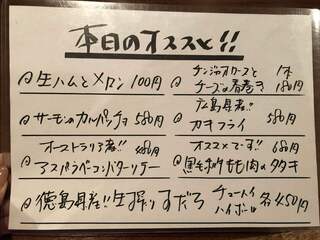 本日のオススメ!!
生ハムとメロン 100円
チンジャオロースと
チーズの春巻き 1本 180円
サーモンのカルパッチョ 580円
広島県産!!
カキフライ 580円
オーストラリア産!!
アスパラベーコンバターソテー 480円
オススメです!! 680円
黒毛和牛もも肉のタタキ
徳島県産!!生搾りすだち
チューハイ
ハイボール 各450円